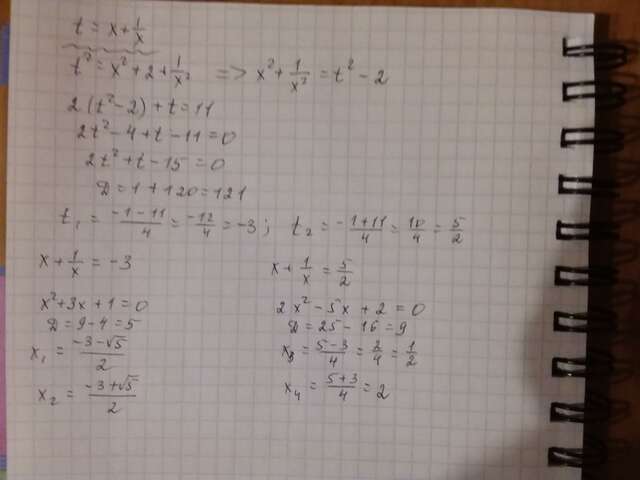 t = x + 1/x
t² = x² + 2 + 1/x² => x² + 1/x² = t² - 2
2(t² - 2) + t = 11
2t² - 4 + t - 11 = 0
2t² + t - 15 = 0
D = 1 + 120 = 121
t₁ = (-1 - 11)/4 = -12/4 = -3; t₂ = (-1 + 11)/4 = 10/4 = 5/2
x + 1/x = -3
x² + 3x + 1 = 0
D = 9 - 4 = 5
x₁ = (-3 - √5)/2
x₂ = (-3 + √5)/2
x + 1/x = 5/2
2x² - 5x + 2 = 0
D = 25 - 16 = 9
x₃ = (5 - 3)/4 = 2/4 = 1/2
x₄ = (5 + 3)/4 = 2